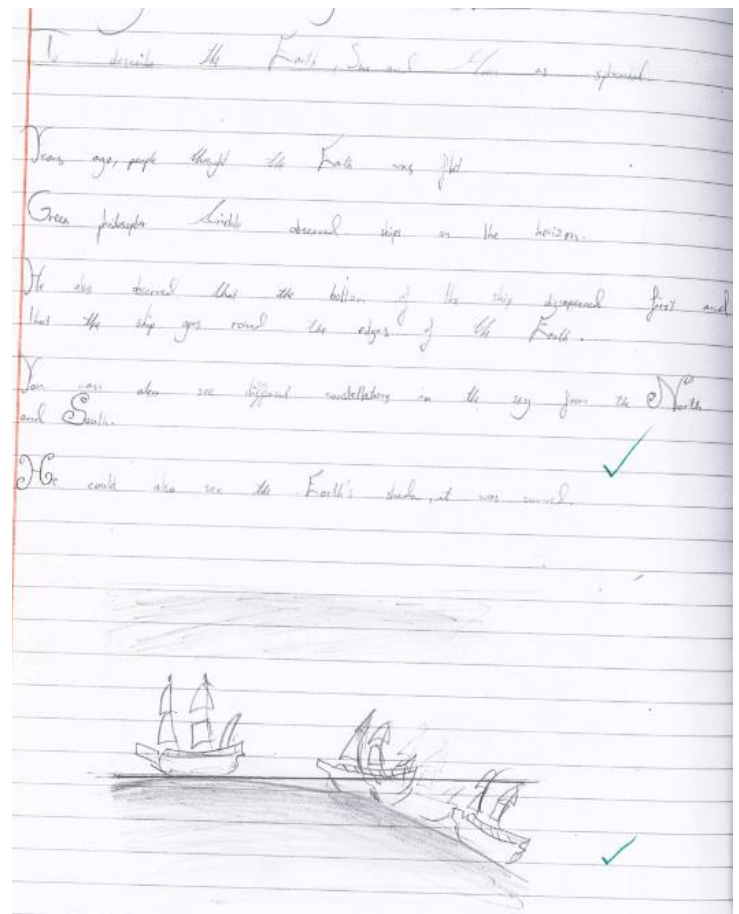 To describe the Earth, Sun and Moon as spherical.
Years ago, people thought the Earth was flat
Green philosopher Aristotle observed ships on the horizon.
He also observed that the bottom of the ship disapeared first and
that the ship goes round the edges of the Earth.
You can also see different constellations in the sky from the North
and South.
He could also see the Earth's shadow, it was curved.